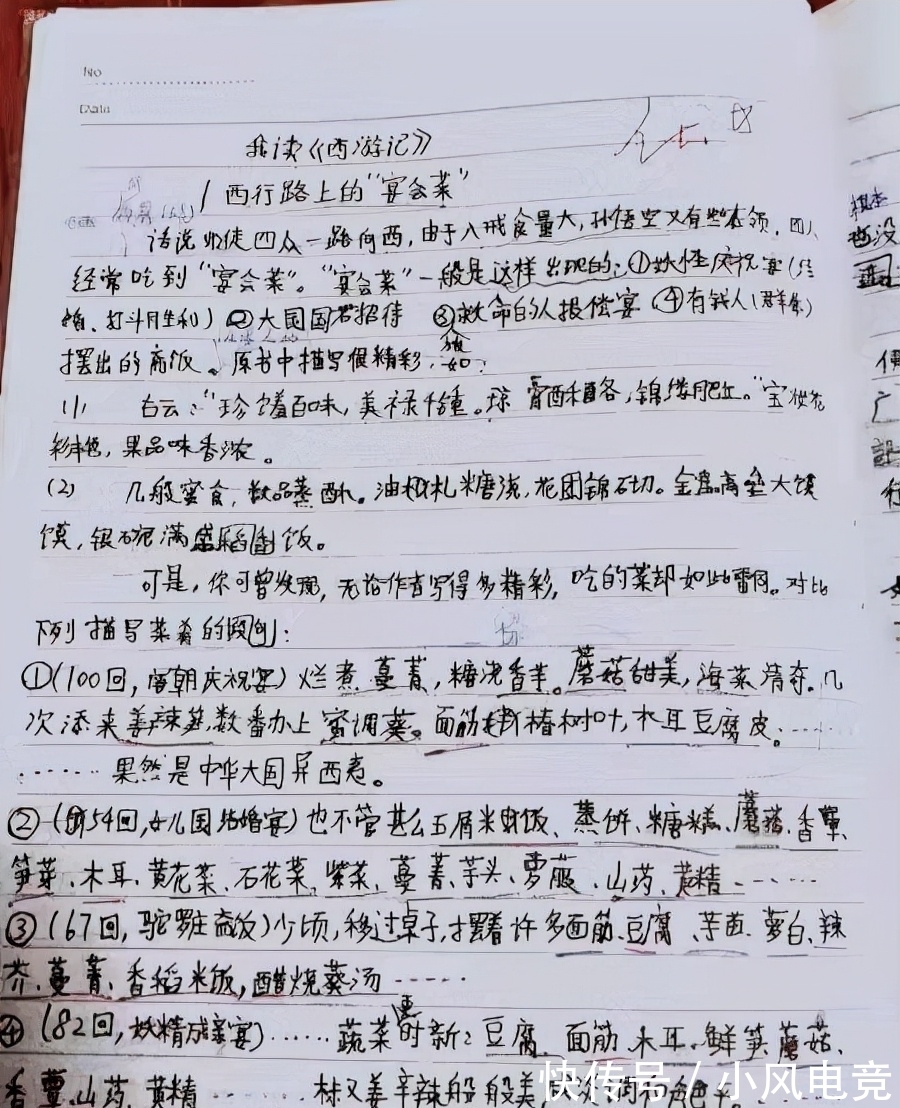 No
Date
我读《西游记》
西行路上的"宴会菜"
话说师徒四众一路向西,由于八戒食量大,孙悟空又有些本领,四人
经常吃到"宴会菜"。"宴会菜"一般是这样出现的:①妖怪庆祝宴(结
婚、打斗胜利)②大国国君招待 ③救命的人报偿宴 ④有钱人(群集)
摆出的斋饭。原书中描写很精彩,如:
(1) 右云:"珍馐百味,美禄千锺。琼膏酥酪,锦缕肥红。"宝妆花
彩艳,果品味香浓。
(2) 几般蜜食,数品蒸酥。油札糖浇,花团锦砌。金盘高垒大馍
馍,银碗满盛稻香饭。
可是,你可曾发现,无论作者写得多精彩,吃的菜却如此雷同。对比
下列描写菜肴的
①(100回,唐朝庆祝宴)烂煮蔓菁,糖浇香芋。蘑菇甜美,海菜清奇。几
次添来姜辣笋,数番办上蜜调葵。面筋椿树叶,木耳豆腐皮。……
……果然是中华大国异西夷。
②(第54回,女儿国结婚宴)也不管甚么玉屑米饭、蒸饼、糖糕、蘑菇、香蕈、
笋芽、木耳、黄花菜、石花菜、紫菜、蔓菁、芋头、萝菔、山药、黄精……
③(67回,驼罗庄斋饭)少顷,移过桌子,摆着许多面筋、豆腐、芋苗、萝白、辣
芥、蔓菁、香稻米饭,醋烧葵汤……
④(82回,妖精成亲宴)……蔬菜更时新:豆腐、面筋、木耳、鲜笋、蘑菇、
香蕈、山药、黄精……椒又姜辛辣般般美,
快传号 / 小风电竞